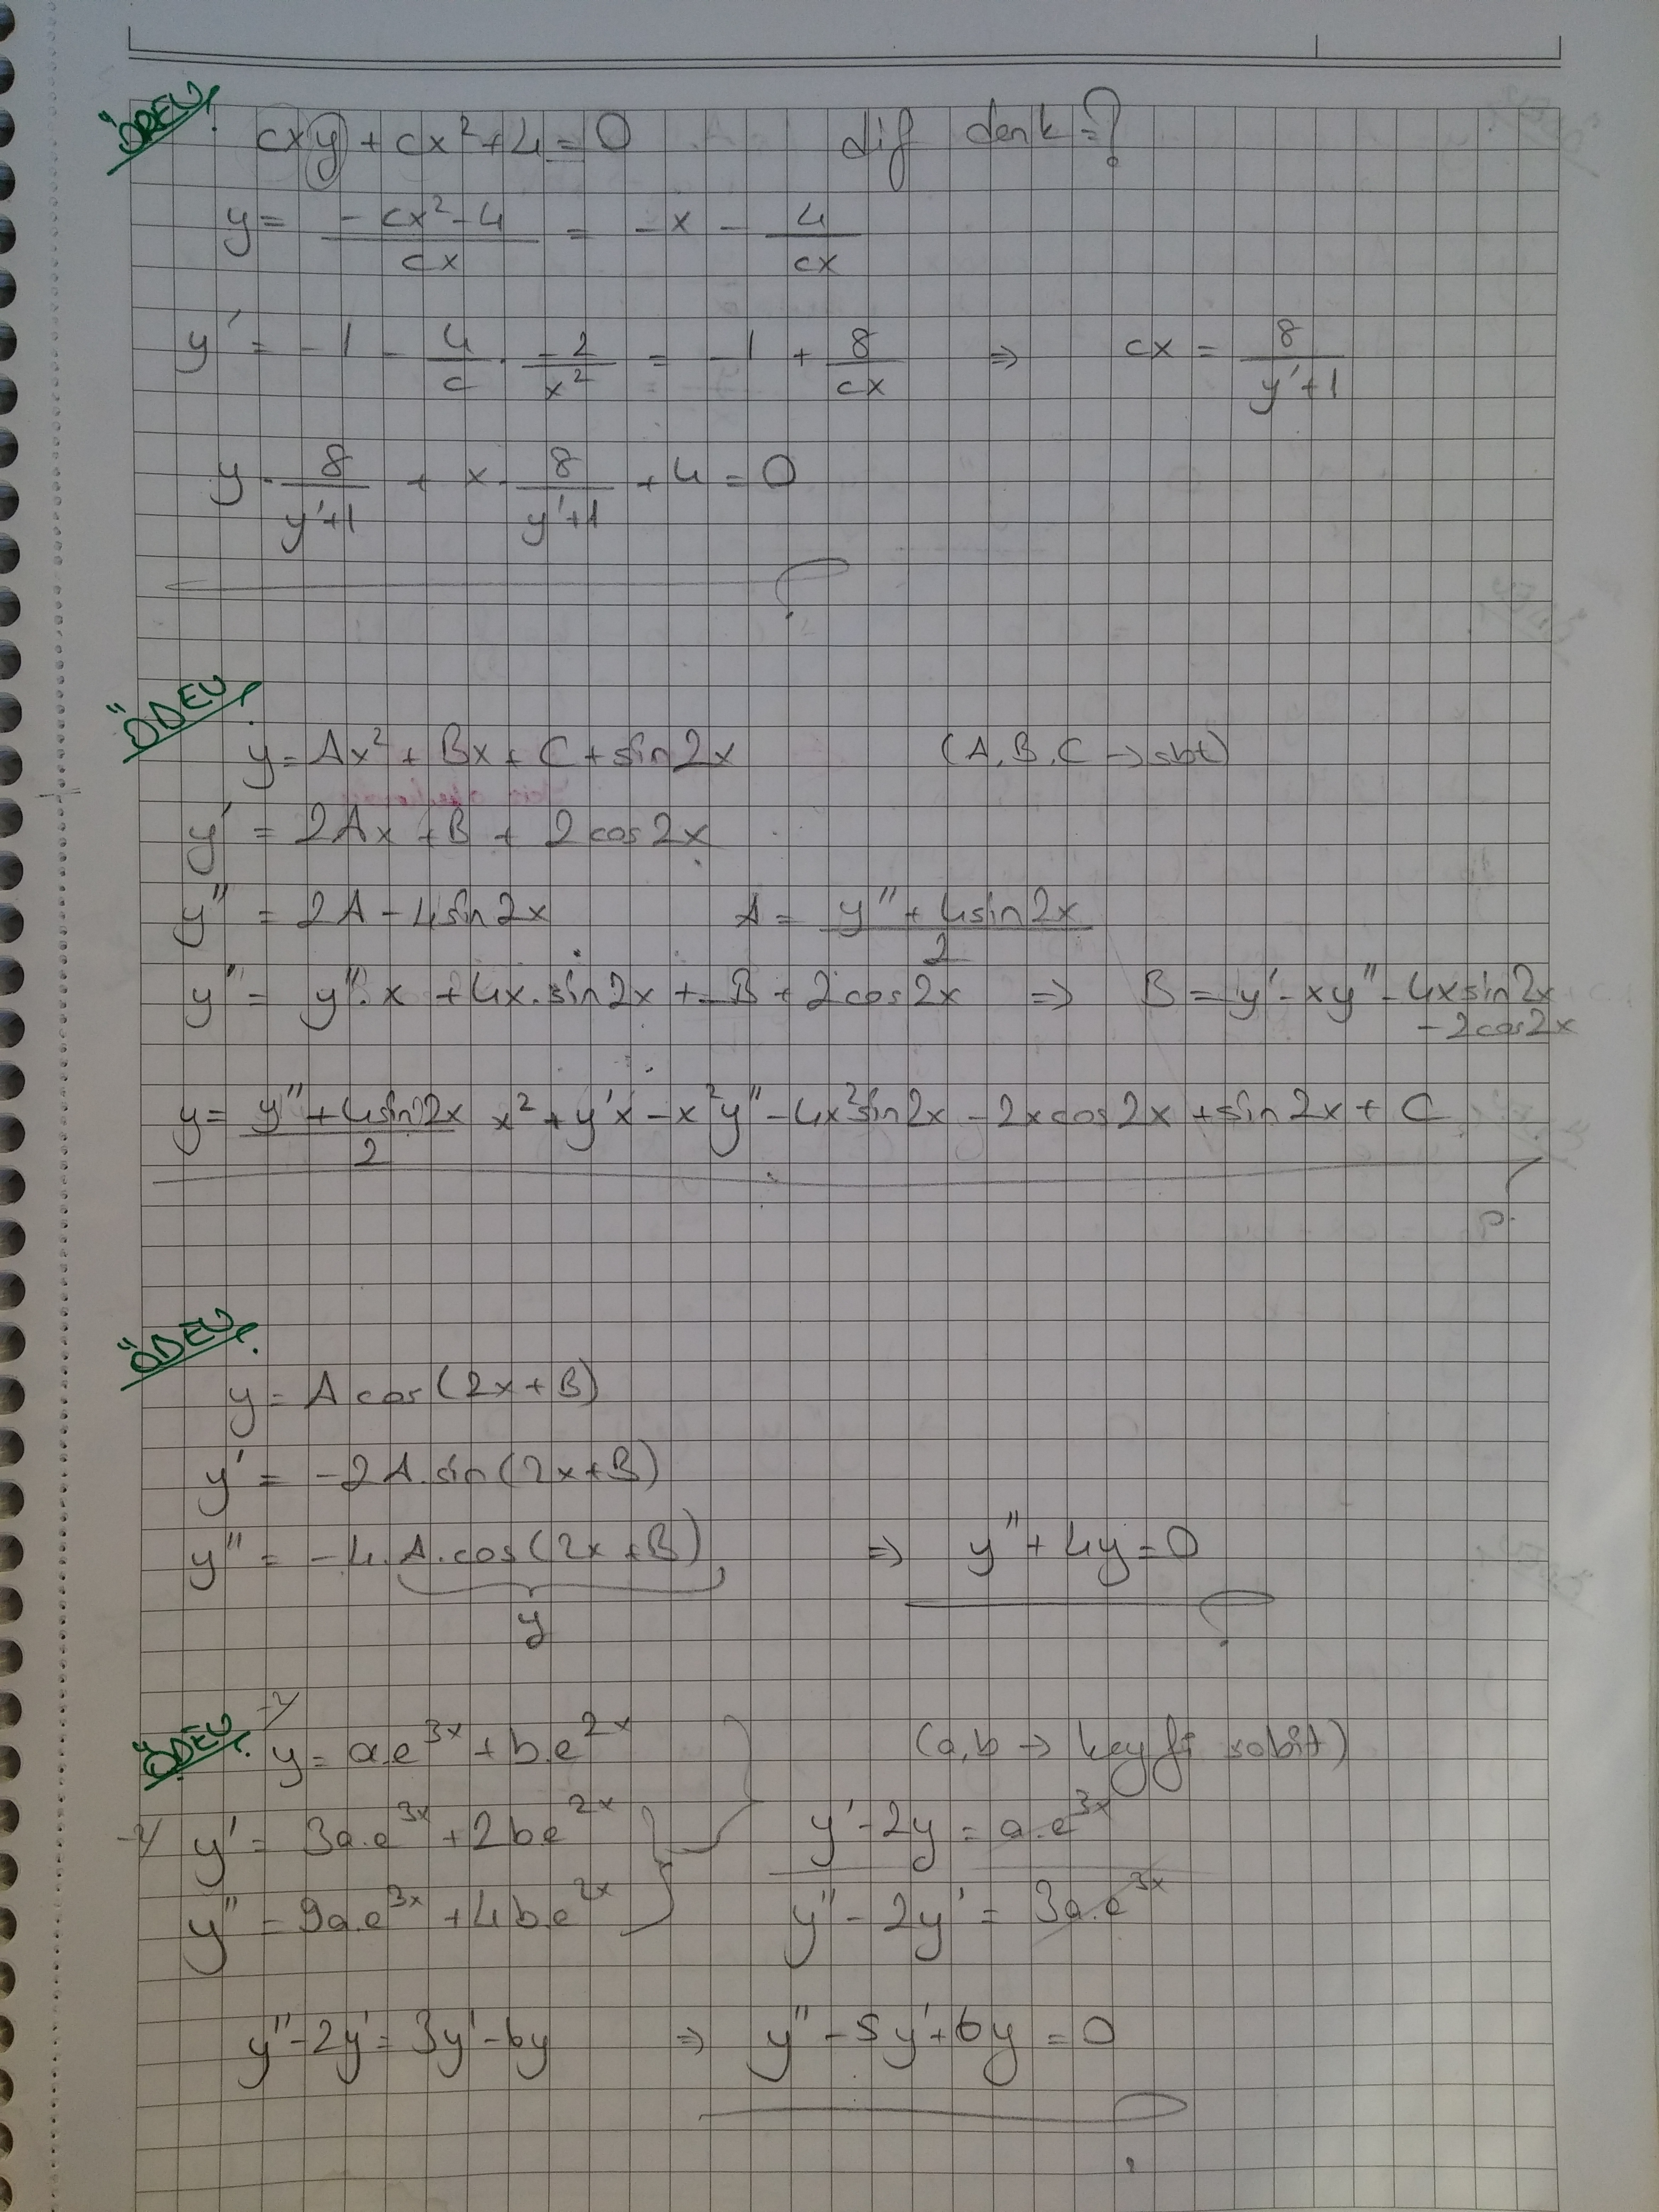 ÖDEV
cxy + cx² + 4 = 0 dif denk = ?
y = (-cx² - 4)/(cx) = -x - 4/(cx)
y' = -1 - 4/c · -2/x² = -1 + 8/(cx) ⇒ cx = 8/(y'+1)
y · 8/(y'+1) + x · 8/(y'+1) + 4 = 0
ÖDEV
y = Ax² + Bx + C + sin2x (A, B, C → sbt)
y' = 2Ax + B + 2cos2x
y'' = 2A - 4sin2x A = (y'' + 4sin2x)/2
y'' = y''·x + 4x·sin2x + B + 2cos2x ⇒ B = y' - xy'' - 4xsin2x
- 2cos2x
y = (y'' + 4sin2x)/2 x² + y'x - x²y'' - 4x²sin2x - 2xcos2x + sin2x + C
ÖDEV
y = A cos(2x+B)
y' = -2A.sin(2x+B)
y'' = -4.A.cos(2x+B) ⇒ y'' + 4y = 0
y
ÖDEV
-2/ y = a.e^3x + b.e^2x (a,b → keyfi sabit)
-2/ y' = 3a.e^3x + 2be^2x y' - 2y = a.e^3x
y'' = 9a.e^3x + 4b.e^2x y'' - 2y' = 3a.e^3x
y'' - 2y' = 3y' - 6y ⇒ y'' - 5y' + 6y = 0